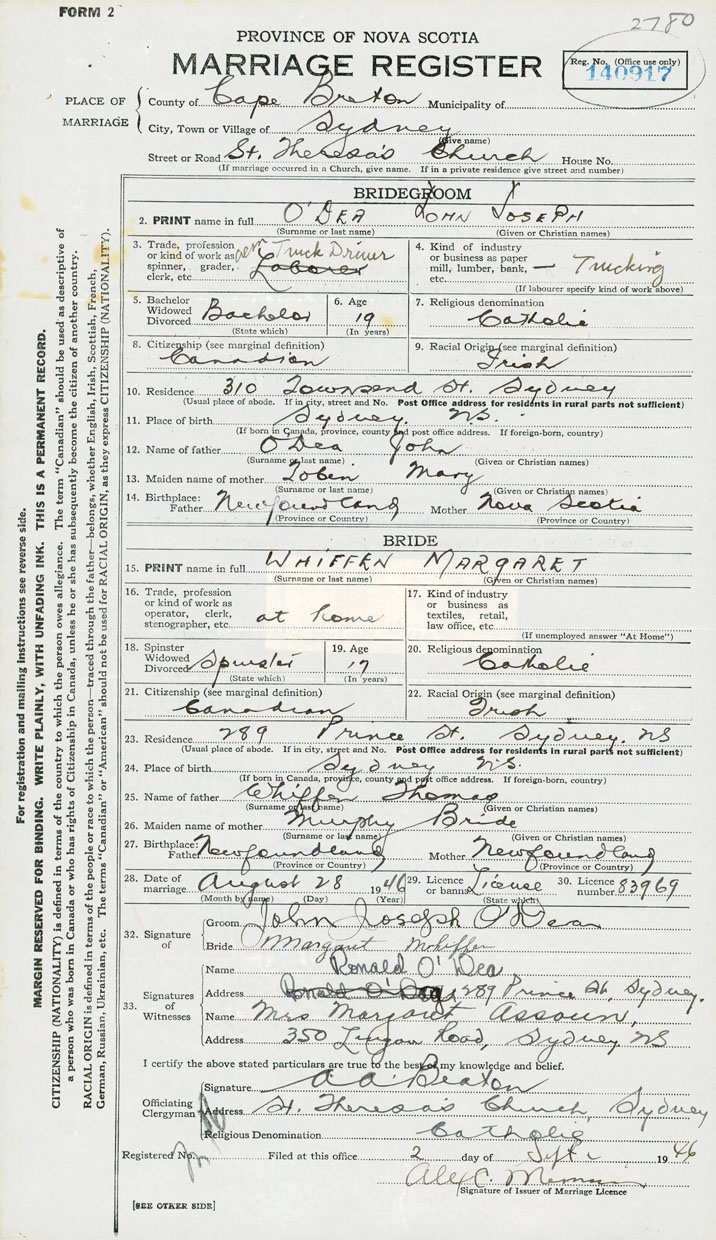 FORM 2
2780
PROVINCE OF NOVA SCOTIA
MARRIAGE REGISTER
Reg. No. (Office use only)
140917
PLACE OF MARRIAGE
County of Cape Breton Municipality of
City, Town or Village of Sydney
(Give name)
Street or Road St. Theresa's Church House No.
(If marriage occurred in a Church, give name. If in a private residence give street and number)
BRIDEGROOM
2. PRINT name in full O'DEA JOHN JOSEPH
(Surname or last name) (Given or Christian names)
3. Trade, profession or kind of work as spinner, grader, clerk, etc. Truck Driver Laborer
4. Kind of industry or business as paper mill, lumber, bank, etc. — Trucking
(If labourer specify kind of work above)
5. Bachelor Widowed Divorced Bachelor
(State which)
6. Age 19
(In years)
7. Religious denomination Catholic
8. Citizenship (see marginal definition) Canadian
9. Racial Origin (see marginal definition) Irish
10. Residence 310 Townsend St. Sydney
(Usual place of abode. If in city, street and No. Post Office address for residents in rural parts not sufficient)
11. Place of birth Sydney. N.S.
(If born in Canada, province, county and post office address. If foreign-born, country)
12. Name of father O'Dea John
(Surname or last name) (Given or Christian names)
13. Maiden name of mother Toben Mary
(Surname or last name) (Given or Christian names)
14. Birthplace: Father Newfoundland Mother Nova Scotia
(Province or Country) (Province or Country)
BRIDE
15. PRINT name in full WHIFFEN MARGARET
(Surname or last name) (Given or Christian names)
16. Trade, profession or kind of work as operator, clerk, stenographer, etc. at home
17. Kind of industry or business as textiles, retail, law office, etc.
(If unemployed answer "At Home")
18. Spinster Widowed Divorced Spinster
(State which)
19. Age 17
(In years)
20. Religious denomination Catholic
21. Citizenship (see marginal definition) Canadian
22. Racial Origin (see marginal definition) Irish
23. Residence 289 Prince St. Sydney. NS
(Usual place of abode. If in city, street and No. Post Office address for residents in rural parts not sufficient)
24. Place of birth Sydney N.S.
(If born in Canada, province, county and post office address. If foreign-born, country)
25. Name of father Whiffen Thomas
(Surname or last name) (Given or Christian names)
26. Maiden name of mother Murphy Bride
(Surname or last name) (Given or Christian names)
27. Birthplace: Father Newfoundland Mother Newfoundland
(Province or Country) (Province or Country)
28. Date of marriage August 28 1946
(Month by name) (Day) (Year)
29. Licence or banns License
(State which)
30. Licence number 83969
32. Signature of
Groom John Joseph O'Dea
Bride Margaret Whiffen
33. Signatures of Witnesses
Name Ronald O'Dea
Address Ronald O'Dea 289 Prince St, Sydney.
Name Mrs Margaret Assoun,
Address 350 Lingan Road, Sydney. NS
I certify the above stated particulars are true to the best of my knowledge and belief.
Officiating Clergyman
Signature A A Beaton
Address St. Theresa's Church, Sydney
Religious Denomination Catholic
Registered No. Filed at this office 2 day of Sept. 1946
Signature of Issuer of Marriage Licence
[SEE OTHER SIDE]
For registration and mailing instructions see reverse side.
MARGIN RESERVED FOR BINDING. WRITE PLAINLY, WITH UNFADING INK. THIS IS A PERMANENT RECORD.
CITIZENSHIP (NATIONALITY) is defined in terms of the country to which the person owes allegiance. The term "Canadian" should be used as descriptive of
a person who was born in Canada or who has rights of Citizenship in Canada, unless he or she has subsequently become the citizen of another country.
RACIAL ORIGIN is defined in terms of the people or race to which the person—traced through the father—belongs, whether English, Irish, Scottish, French,
German, Russian, Ukrainian, etc. The terms "Canadian" or "American" should not be used for RACIAL ORIGIN, as they express CITIZENSHIP (NATIONALITY).